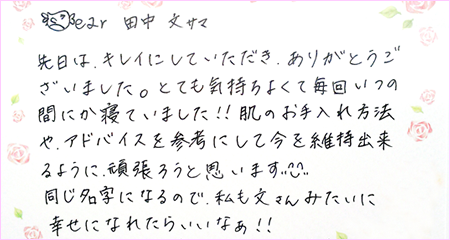 Dear 田中 文サマ
先日は、キレイにしていただき、ありがとうご
ざいました。とても気持ちよくて毎回いつの
間にか寝ていました!!肌のお手入れ方法
や、アドバイスを参考にして今を維持出来
るように、頑張ろうと思います
同じ名字になるので、私も文さんみたいに
幸せになれたらいいなぁ!!